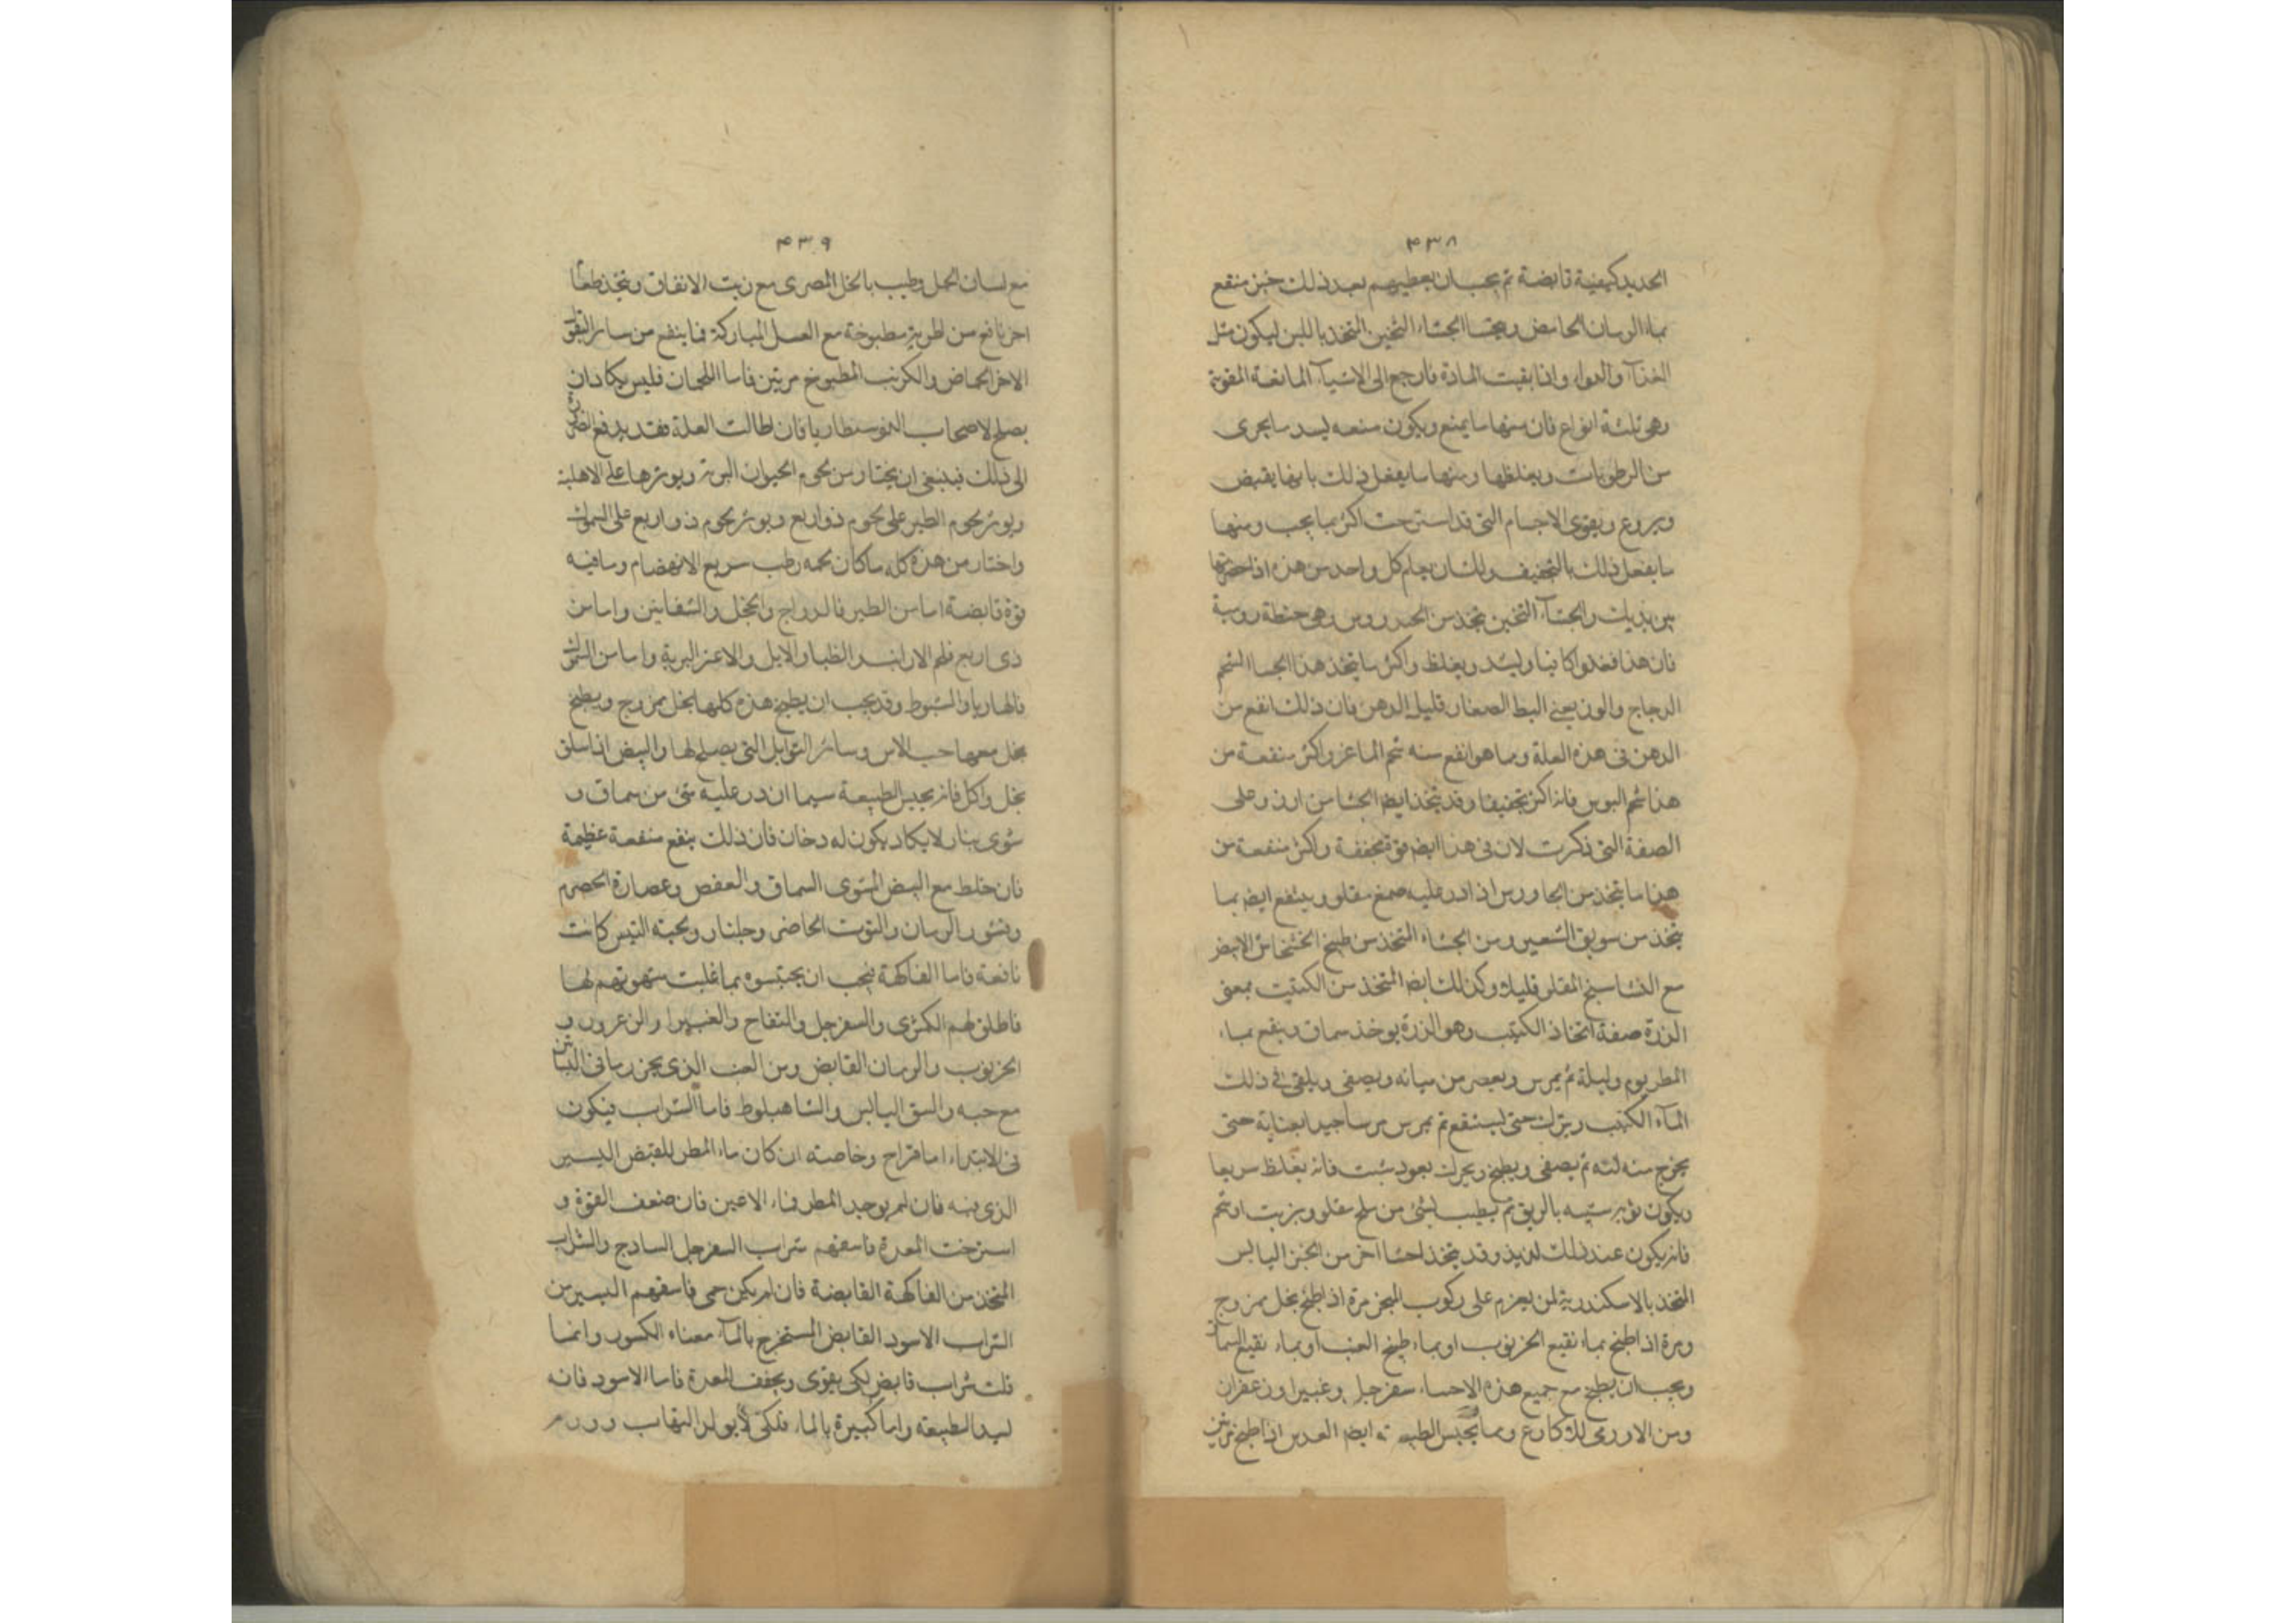 ۴۳۸
الحديد كيفية قابضة ثم يجب ان يعطيهم بعد ذلك خبز منقع
بماء الرمان الحامض وبحسا الجشاء الثخين المتخذ باللبن ليكون مثل
الغذآ والدواء واذا بقيت المادة فارجع الى الاشيآ المانعة المقوية
وهى ثلثة انواع فان منها ما يمنع ويكون منعه ليسد ما يجرى
من الرطوبات ويغلظها ومنها ما يفعل ذلك بانها يقبض
ويروع ويقوى الاجسام التى قد استرخت اكثر مما يجب ومنها
ما يفعل ذلك بالتجفيف ولك ان يعلم كل واحد من هذه اذا
بين يديك والجشآ الثخين يتخذ من الخندروس وهى حنطة رومية
فان هذا فغذاوا كافيا وليسد ويغلظ واكثر ما يتخذ هذا الحسا الشحم
الدجاج والوز يعنى البط الصغار قليل الدهن فان ذلك انفع من
الدهن فى هذه العلة وما هو انفع منه شحم الماعز واكثر منفعة من
هذا شحم التيوس فانه اكثر تجفيفا وقد يتخذ ايضا الجشا من ارز وعلى
الصفة التى ذكرت لان فى هذا ايضا قوة مجففة واكثر منفعة من
هذا ما يتخذ من الجاورس اذا در عليه صمغ مقلو وينتفع ايضا بما
يتخذ من سويق الشعير ومن الجشاء المتخذ من طبيخ الخشخاش الابيض
مع النشاسبح المقلو قليلا وكذلك ايضا المتخذ من الكبتيت بمعنى
الذرة صفة اتخاذ الكبتب وهو الذرة يوخذ سماق وينقع بماء
المطر يوم وليلة ثم يمرس ويعصر من مياته ويصفى ويلقى فى ذلك
المآء الكبتب ويترك حتى ليستنقع ثم يمرس مرسا جيدا بعناية حتى
يخرج منه لته ثم يصفى ويطبخ ويحرك بعود شبت فانه يغلظ سريعا
ويكون نوره شبيه بالريق ثم يطيب بشئ من ملح مقلو وبزيت او شحم
فانه يكون عند ذلك لذيذ وقد يتخذ احشا اخر من الخبز اليابس
المتخذ بالاسكندرية لمن يعزم على ركوب البحر مرة اذا طبخ بخل ممزوج
ومرة اذا طبخ بماء نقيع الخرنوب او بماء طبيخ العنب او بماء نقيع السماق
ويجب ان يطبخ مع جميع هذه الاحساء سفرجل وغبيرا وزعفران
ومن الاورى للاكارع ومما يحبس الطبيعة ايضا العدس اذا طبخ مرتين
۴۳۹
مع لسان الحمل وطيب بالخل المصرى مع زيت الانفاق ويتخذ طعاما
اخر نافع من اطرية مطبوخة مع العسل المباركة فما ينفع من سائر البقول
الاخر الحماض والكرنب المطبوخ مرتين فاما اللحمان فليس يكاد ان
يصلح لاصحاب الدوسنطاريا فان طالت العلة فقد يدفع الضرورة
الى ذلك فينبغى ان يختار من لحوم الحيوان البرية ويوثرها على الاهلية
ويوثر لحوم الطير على لحوم ذو اربع ويوثر لحوم ذو اربع على السموك
واختار من هذه كله ما كان لحمه رطب سريع الانهضام وما فيه
قوة قابضة اما من الطير فالدراج والحجل والشفانين واما من
ذى اربع فلحم الارانب والظبا والايل والاعنز البرية واما من السموك
فالهاربا والشبوط وقد يجب ان يطبخ هذه كلها بخل ممزوج ويطبخ
بخل معها حب الاس وسائر التوابل التى يصلح لها والبيض اذا سلق
بخل واكل فانه يحبس الطبيعة سيما ان در عليه شئ من سماق و
شوى بنار لا يكاد يكون له دخان فان ذلك ينفع منفعة عظيمة
فان خلط مع البيض المشوى السماق والعفص وعصارة الحصرم
وقشور الرمان والتوت الحامض وجلنار ولحية التيس كانت
نافعة فاما الفاكهة فيجب ان يجتنبوه بما غلبت شهوتهم لها
فاطلق لهم الكمثرى والسفرجل والتفاح والغبيرا والزعرور و
الخرنوب والرمان القابض ومن العنب الذى يخزن ما فى التبن
مع حبه والبسق اليابس والشاهبلوط فاما الشراب فيكون
فى الابتداء اما قراح وخاصته ان كان ماء المطر للقبض اليسير
الذى فيه فان لم يوجد المطر فماء الاعين فان ضعف القوة و
استرخت المعدة فاسقهم شراب السفرجل الساذج والشراب
المتخذ من الفاكهة القابضة فان لم يكن حمى فاسقهم اليسير من
الشراب الاسود القابض المستخرج بالمآ معناه الكسور وانما
قلت شراب قابض لكى يقوى ويجفف المعدة فاما الاسود فانه
ليسد الطبيعة واما كسره بالماء فلكى لا يولد التهاب وورم